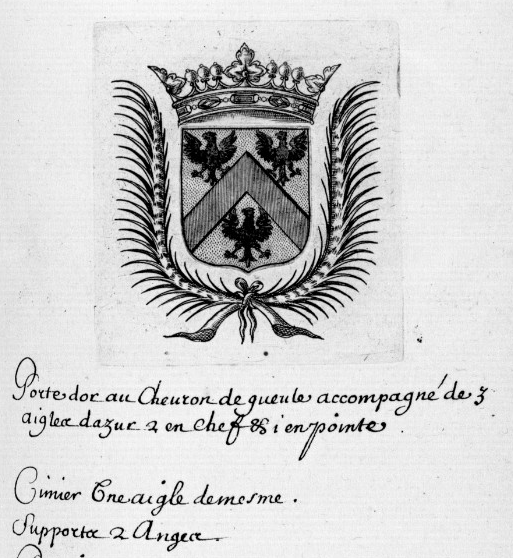 Porte dor au Cheuron de gueule accompagné de 3
aigles dazur 2 en chef & i en pointe
Cimier Une aigle de mesme.
Supports 2 Anges.